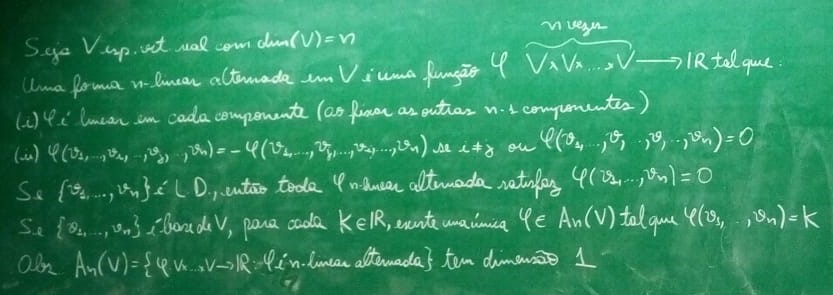 n vezes
Seja V esp. vet. real com dim(V)=n
Uma forma n-linear alternada em V é uma função φ V×V×...×V → IR tal que:
(i) φ é linear em cada componente (ao fixar as outras n-1 componentes)
(ii) φ(v₁,...,vᵢ,..,vⱼ,..,vₙ) = -φ(v₁,...,vⱼ,...,vᵢ,...,vₙ) se i≠j ou φ(v₁,...,v,..,v,..,vₙ)=0
Se {v₁,...,vₙ} é L.D., então toda φ n-linear alternada satisfaz φ(v₁,...,vₙ)=0
Se {v₁,...,vₙ} é base de V, para cada K∈IR, existe uma única φ∈ An(V) tal que φ(v₁,..,vₙ)=K
Obs. An(V)={φ V×...×V→IR: φ é n-linear alternada} tem dimensão 1